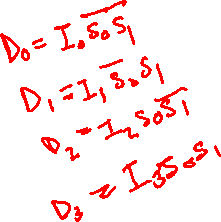 D₀ = I₀ S̅₀ S̅₁
D₁ = I₁ S̅₀ S₁
D₂ = I₂ S₀ S̅₁
D₃ = I₃ S₀ S₁